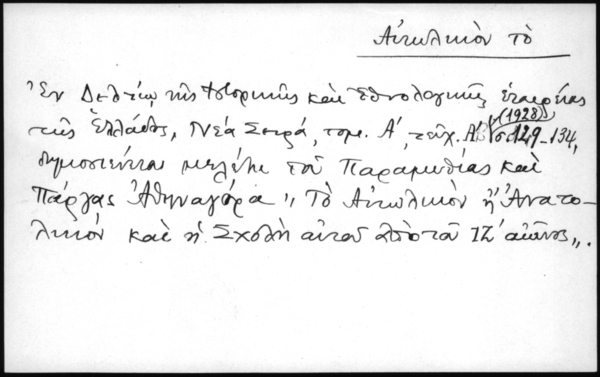 Αἰτωλικὸν τὸ
Ἐν Δελτίῳ τῆς Ἱστορικῆς καὶ Ἐθνολογικῆς Ἑταιρείας
τῆς Ἑλλάδος, Νέα Σειρά, τομ. Α΄, τεῦχ. Α΄ (1928) σ. 129-134,
δημοσιεύεται μελέτη τοῦ Παραμυθίας καὶ
Πάργας Ἀθηναγόρα „Τὸ Αἰτωλικὸν ἢ Ἀνατο-
λικὸν καὶ ἡ Σχολὴ αὐτοῦ ἀπὸ τοῦ ΙΖ΄ αἰῶνος„.